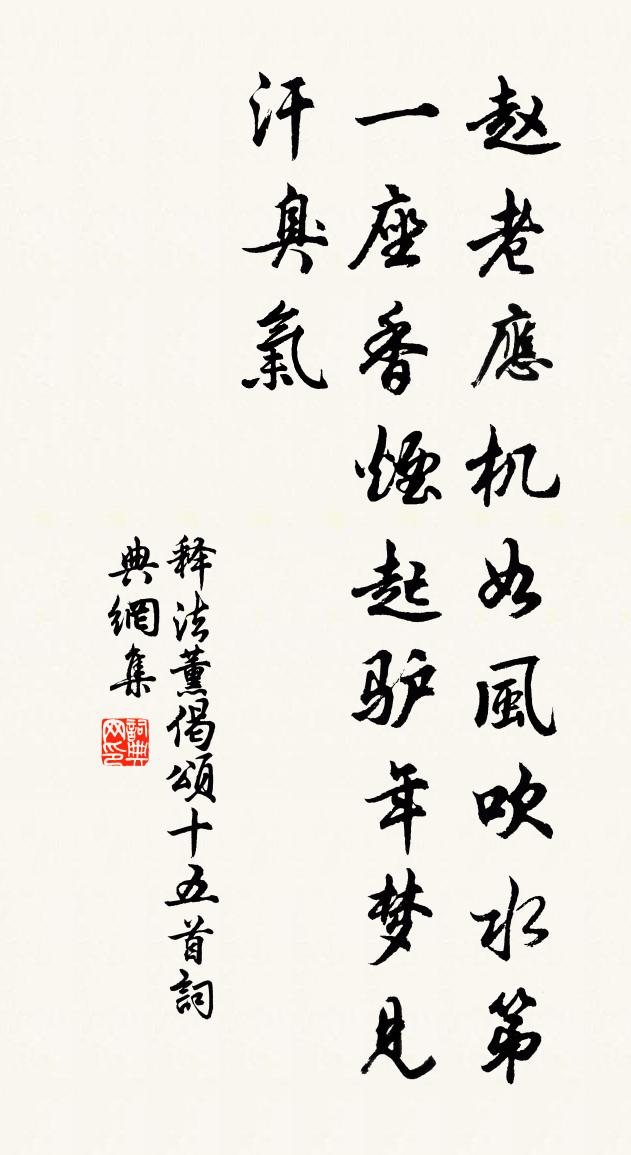 赵老應机如風吹水第
一座香煙起驴年梦見
汗臭氣
释法薰偈頌十五首詞
典網集
詞典
网印